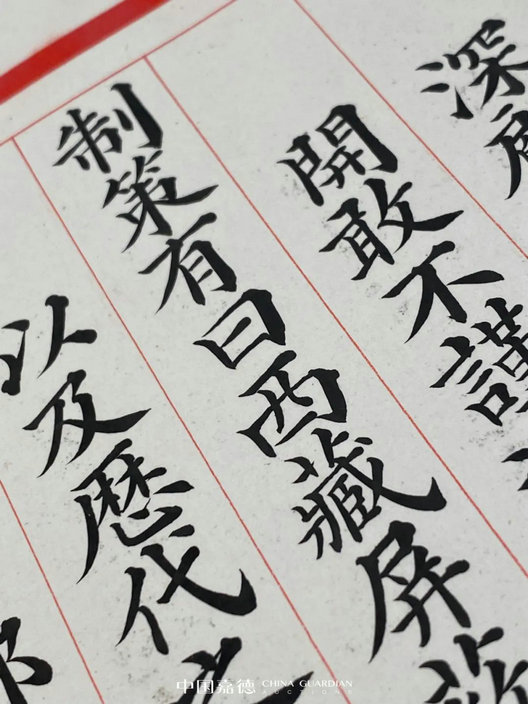 深
開敢不謹
制策有曰西藏屏
以及歷代
中国嘉德 CHINA GUARDIAN
AUCTIONS